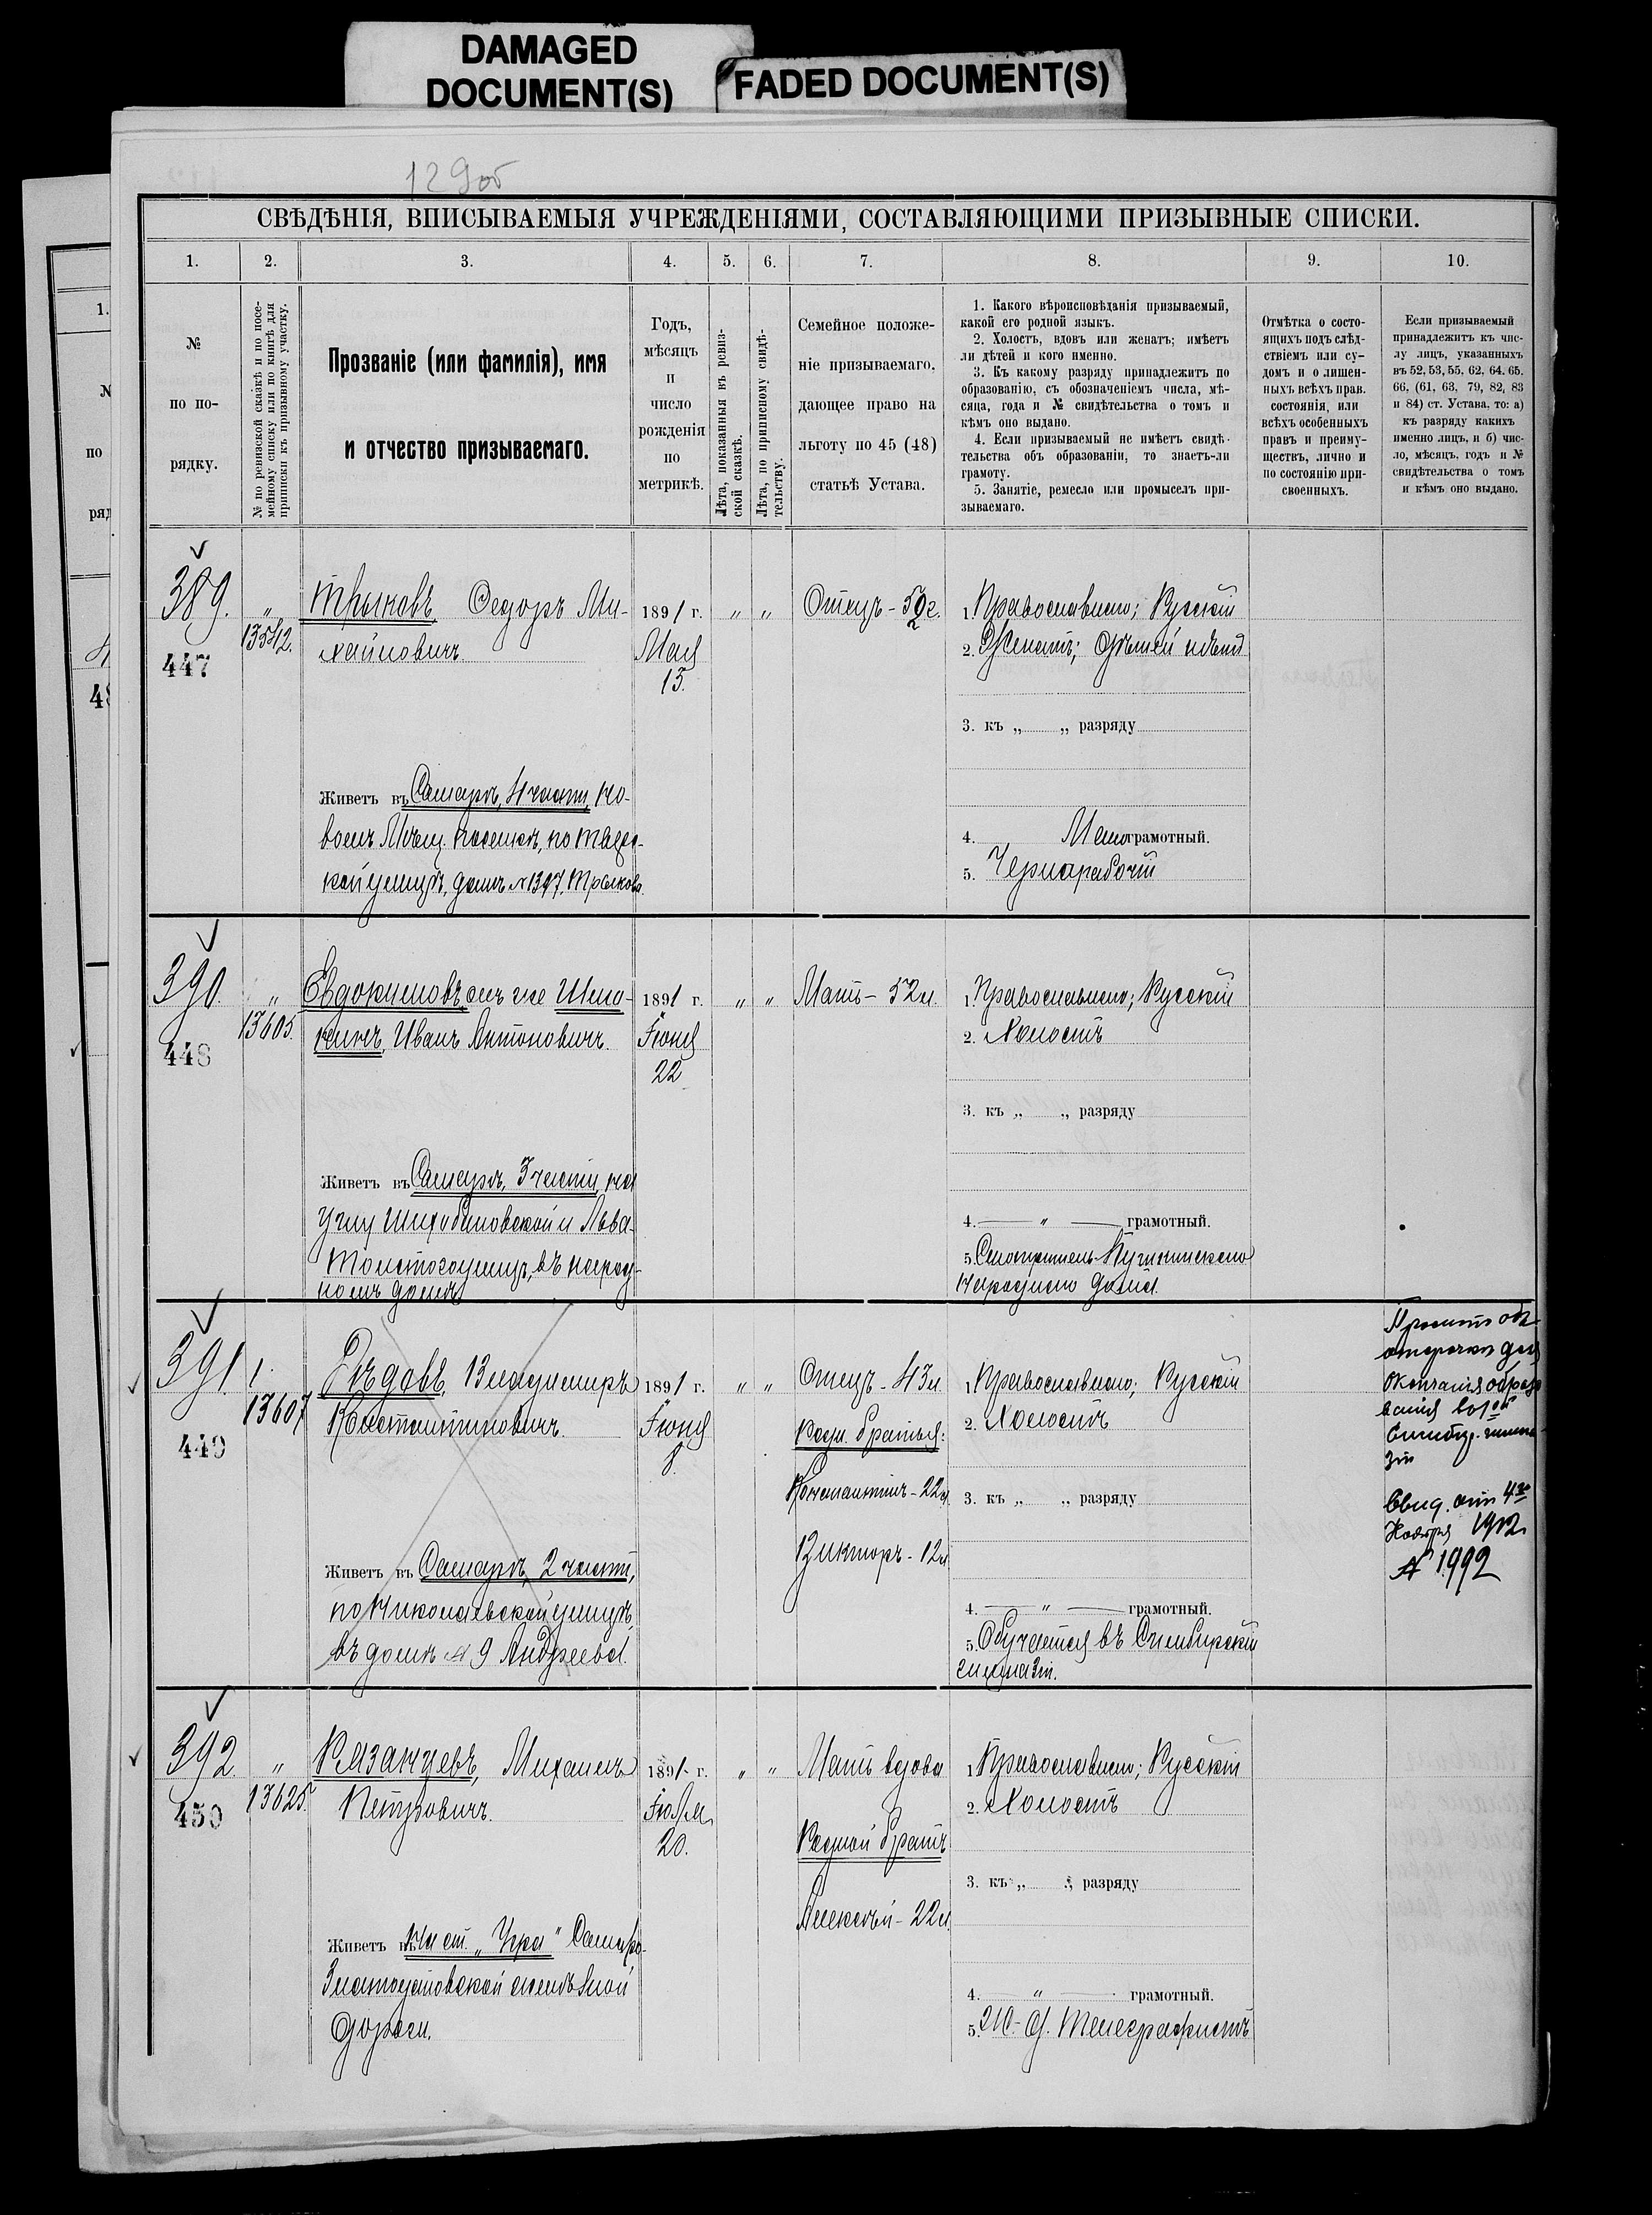 DAMAGED
DOCUMENT(S)
FADED DOCUMENT(S)
129об
СВѢДѢНІЯ, ВПИСЫВАЕМЫЯ УЧРЕЖДЕНІЯМИ, СОСТАВЛЯЮЩИМИ ПРИЗЫВНЫЕ СПИСКИ.
1. 2. 3. 4. 5. 6. 7. 8. 9. 10.
№
по по-
рядку.
№ по ревизской сказкѣ и по посе-
мейному списку или по книгѣ для
приписки къ призывному участку.
Прозваніе (или фамилія), имя
и отчество призываемаго.
Годъ,
мѣсяцъ
и
число
рожденія
по
метрикѣ.
Лѣта, показанныя въ ревиз-
ской сказкѣ.
Лѣта, по приписному свидѣ-
тельству.
Семейное положе-
ніе призываемаго,
дающее право на
льготу по 45 (48)
статьѣ Устава.
1. Какого вѣроисповѣданія призываемый,
какой его родной языкъ.
2. Холостъ, вдовъ или женатъ; имѣетъ
ли дѣтей и кого именно.
3. Къ какому разряду принадлежитъ по
образованію, съ обозначеніемъ числа, мѣ-
сяца, года и № свидѣтельства о томъ и
кѣмъ оно выдано.
4. Если призываемый не имѣетъ свидѣ-
тельства объ образованіи, то знаетъ-ли
грамоту.
5. Занятіе, ремесло или промыселъ при-
зываемаго.
Отмѣтка о состо-
ящихъ подъ слѣд-
ствіемъ или су-
домъ и о лишен-
ныхъ всѣхъ прав.
состоянія, или
всѣхъ особенныхъ
правъ и преиму-
ществъ, лично и
по состоянію при-
своенныхъ.
Если призываемый
принадлежитъ къ чис-
лу лицъ, указанныхъ
въ 52, 53, 55, 62, 64. 65.
66. (61, 63, 79, 82, 83
и 84) ст. Устава, то: а)
къ разряду какихъ
именно лицъ, и б) чис-
ло, мѣсяцъ, годъ и №
свидѣтельства о томъ
и кѣмъ оно выдано.
389.
447
„
13542.
Трыковъ, Федоръ Ми-
хайловичъ.
1891 г.
Мая
15.
„ „
Отецъ - 52 г.
1. Православнаго; Русскій
2. Женатъ; дѣтей нѣтъ
3. къ „ „ разряду
4. Малограмотный.
5. Чернорабочій
Живетъ въ Самарѣ, 4 части, Но-
вомъ Мѣщ. поселкѣ, по
кой улицѣ, домъ № 1397, Трыкова.
390.
448
„
13605.
Евдокимовъ, онъ же Шма-
кинъ, Иванъ Антоновичъ.
1891 г.
Іюня
22
„ „
Мать - 52 л.
1. Православнаго; Русскій
2. Холостъ
3. къ „ „ разряду
4. „ грамотный.
5. Смотритель Пушкинскаго
Народнаго дома.
Живетъ въ Самарѣ, 3 части, на
углу Шихобаловской и Льва
Толстого улицъ, въ народ-
номъ домѣ
391.
449
1.
13607
Рѣдовъ, Владимиръ
Константиновичъ.
1891 г.
Іюня
8.
„ „
Отецъ - 43 л.
Родн. братья:
Константинъ - 22 л.
Викторъ - 12 л.
1. Православнаго; Русскій
2. Холостъ
3. къ „ „ разряду
4. „ грамотный.
5. Обучается въ Симбирской
гимназіи.
Проситъ объ
отсрочкѣ для
окончанія образо
ванія во 1ой
Симбир. гимна-
зіи
Свид. отъ 4го
Ноября 1912
№ 1992
Живетъ въ Самарѣ, 2 части,
по Николаевской улицѣ,
въ домѣ № 9 Андреева.
392.
450
„
13625.
Рязанцевъ, Михаилъ
Петровичъ.
1891 г.
Іюля
20.
„ „
Мать вдова
Родной братъ
Алексѣй - 22 л.
1. Православнаго; Русскій
2. Холостъ
3. къ „ „ разряду
4. „ грамотный.
5. Ж. д. Телеграфистъ
Живетъ въ На ст. „Чра" Самаро-
Златоустовской желѣзной
дороги.